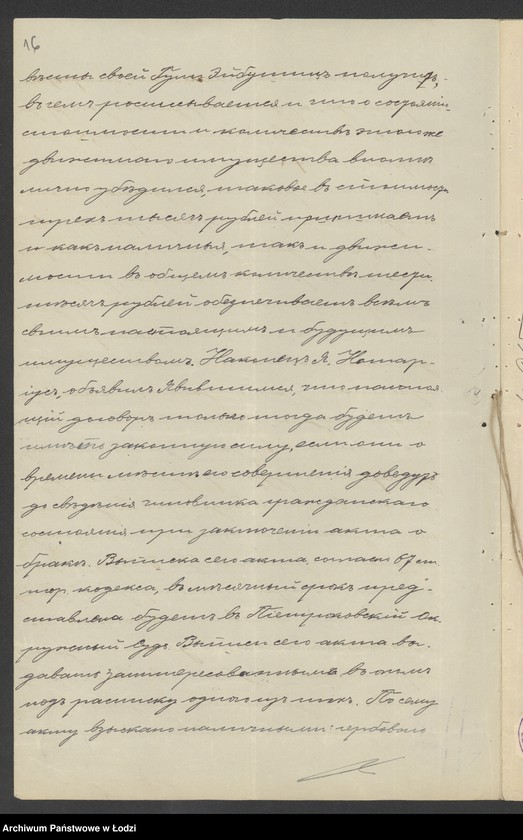 16
вѣсты своей Гуты Эйбушицъ получилъ,
въ чемъ росписывается и что о состояніи
стоимости и количествѣ этого же
движимаго имущества вполнѣ
лично убѣдился, таковое въ стоимости
трехъ тысячъ рублей принимаетъ
и какъ наличныя, такъ и движи-
мости въ общемъ количествѣ шести
тысячъ рублей обезпечиваетъ всѣмъ
своимъ настоящимъ и будущимъ
имуществомъ. Наконецъ Я, Нотар-
іусъ, объявилъ явившимся, что настоя-
щій договоръ только тогда будетъ
имѣть законную силу, если они о
времени и мѣстѣ его совершенія доведутъ
до свѣдѣнія чиновника гражданскаго
состоянія при заключеніи акта о
бракѣ. Выписка сего акта, согласно 67 ст.
тор. кодекса, въ мѣсячный срокъ пред-
ставлена будетъ въ Петроковскій Ок-
ружный Судъ. Выписи сего акта вы-
давать заинтересованнымъ въ ономъ
подъ расписку одного изъ нихъ. По сему
акту взыскано наличными: гербоваго
Archiwum Państwowe w Łodzi